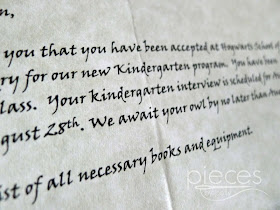 you that you have been accepted at Hogwarts School of
ry for our new Kindergarten program. You have been
lass. Your kindergarten interview is scheduled for
gust 28th. We await your owl by no later than
ist of all necessary books and equipment.
pieces